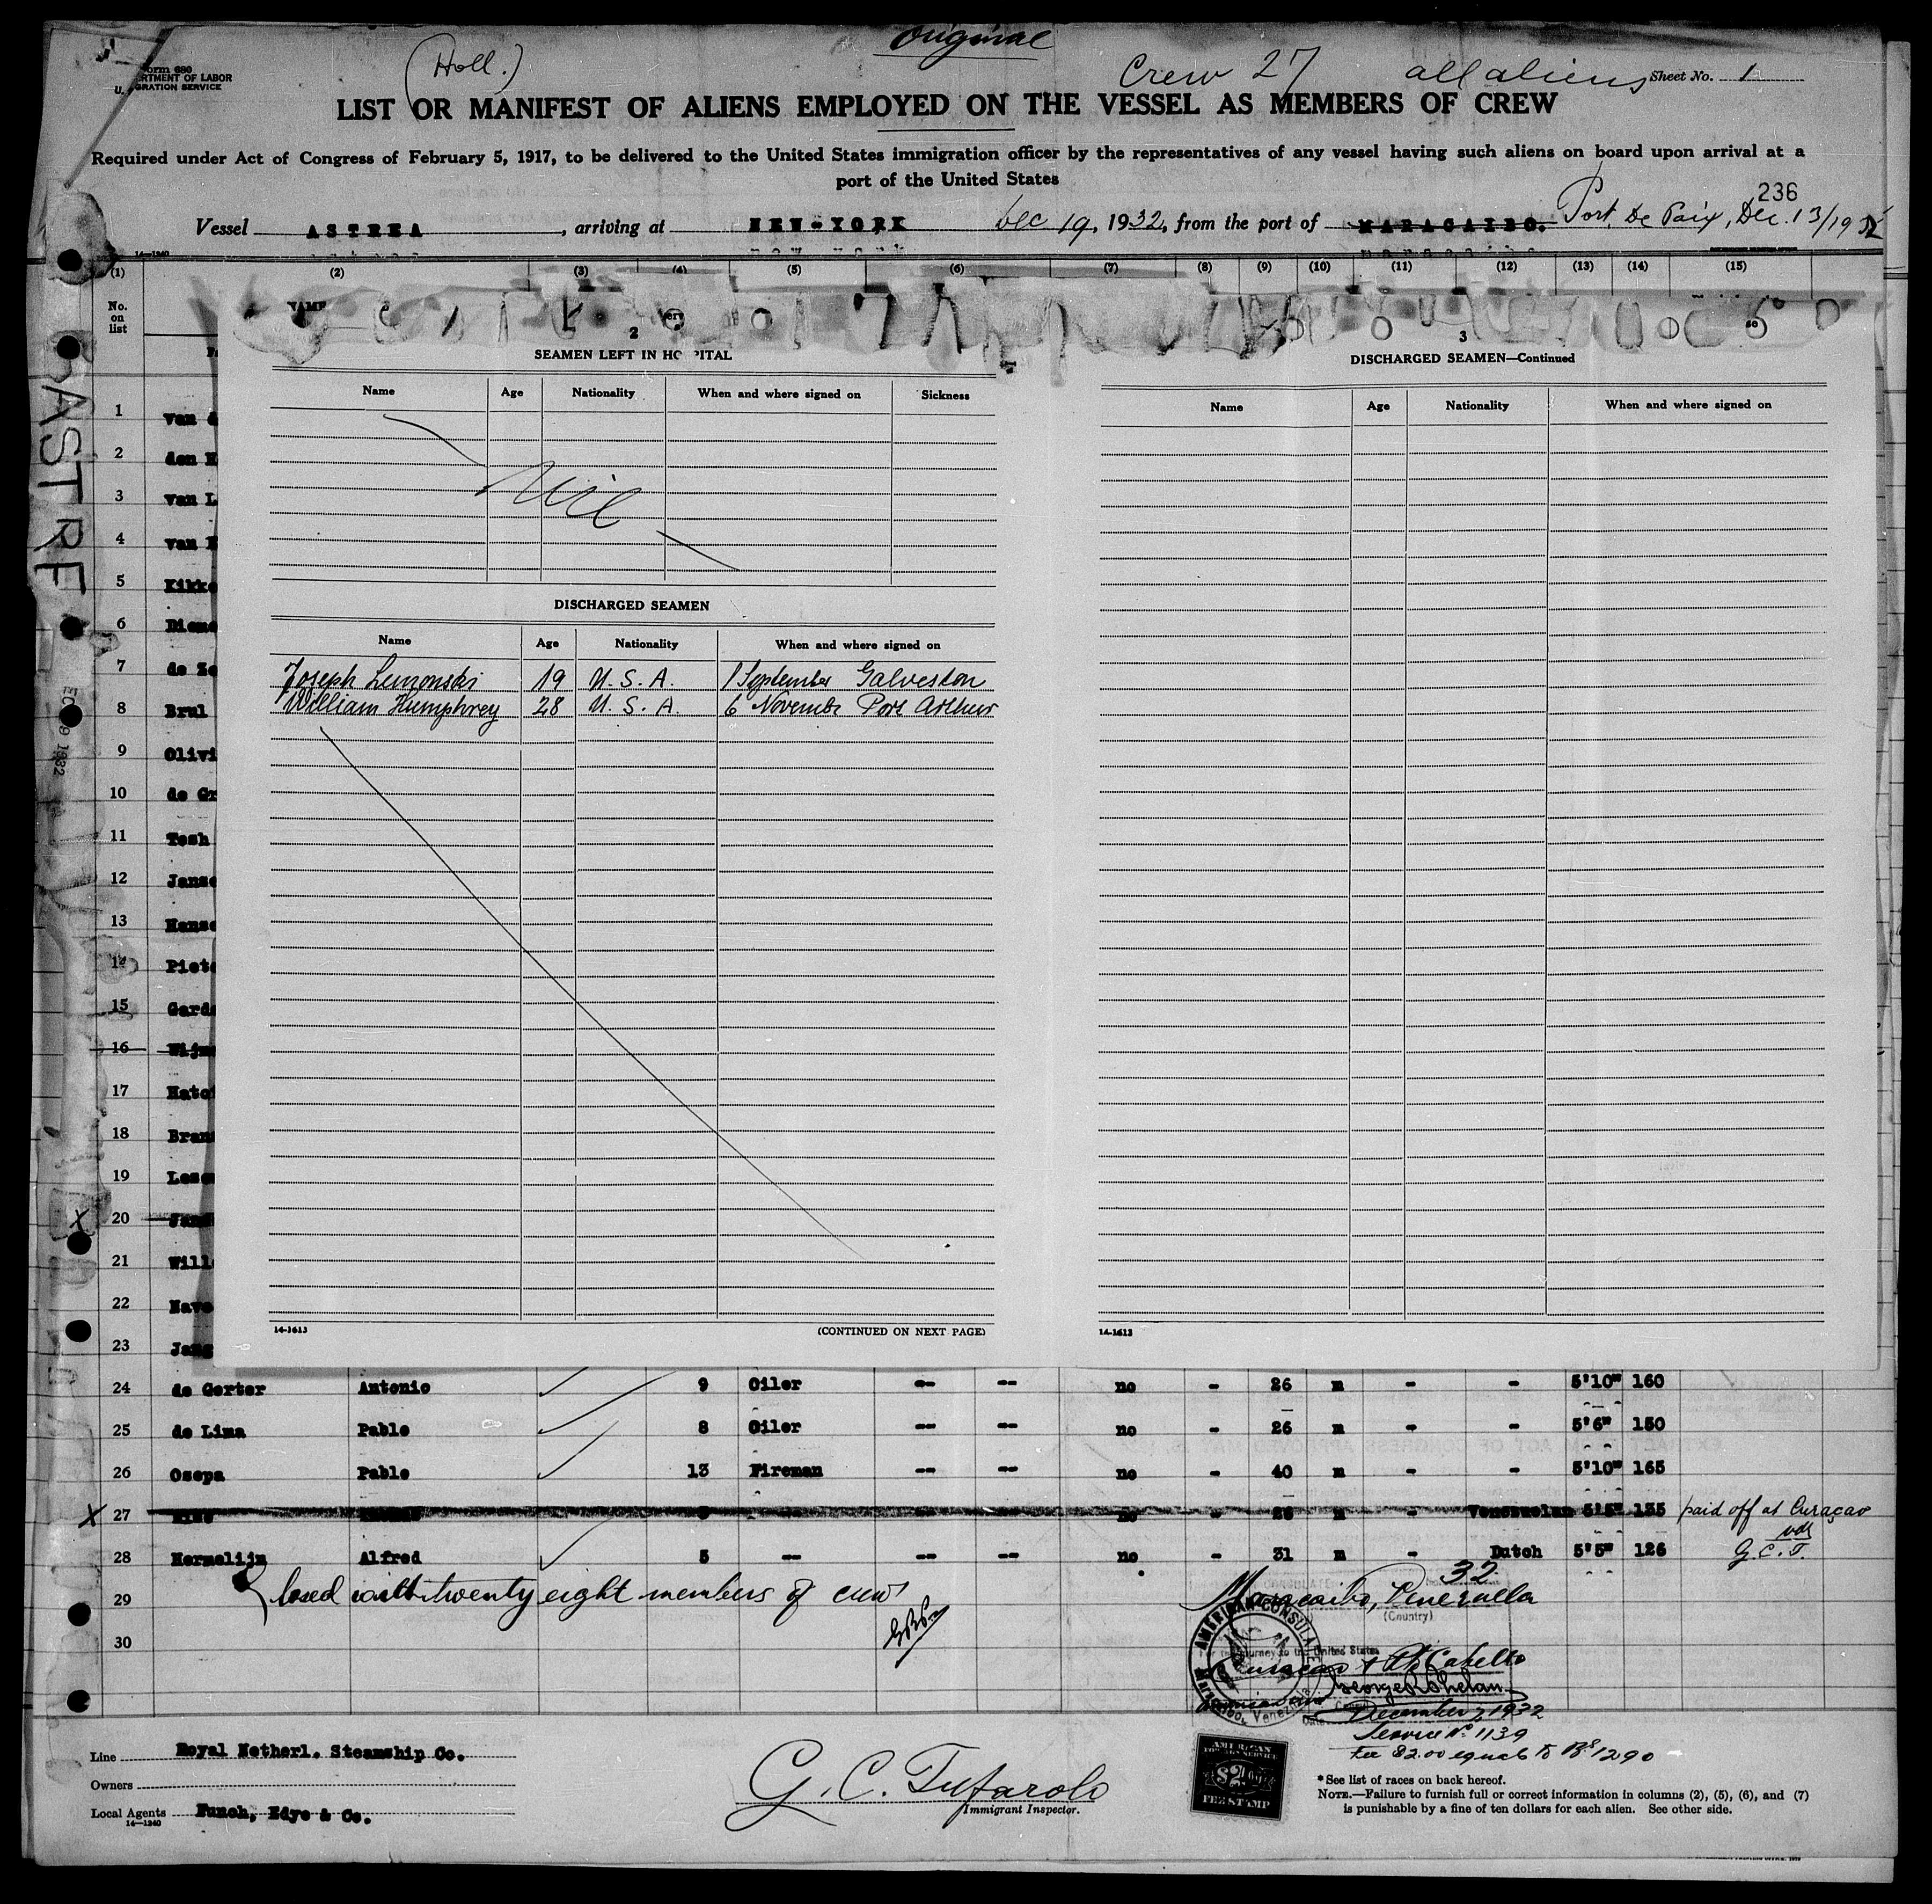 Original
(Holl.)
Crew 27 all aliens Sheet No. 1
Form 680
U. S. DEPARTMENT OF LABOR
IMMIGRATION SERVICE
LIST OR MANIFEST OF ALIENS EMPLOYED ON THE VESSEL AS MEMBERS OF CREW
Required under Act of Congress of February 5, 1917, to be delivered to the United States immigration officer by the representatives of any vessel having such aliens on board upon arrival at a
port of the United States
236
Vessel ASTREA, arriving at NEW-YORK Dec 19, 1932, from the port of MARACAIBO. Port De Paix, Dec. 13/1932
14-1240
(1) (2) (3) (4) (5) (6) (7) (8) (9) (10) (11) (12) (13) (14) (15)
No. on list
NAME
2
SEAMEN LEFT IN HOSPITAL
Name Age Nationality When and where signed on Sickness
Nil
DISCHARGED SEAMEN
Name Age Nationality When and where signed on
Joseph Lemonski 19 U.S.A. 1 September Galveston
William Humphrey 28 U.S.A. 6 Novembr Port Arthur
14-1613 (CONTINUED ON NEXT PAGE)
3
DISCHARGED SEAMEN—Continued
Name Age Nationality When and where signed on
14-1613
ASTREA
1 van
2 den
3 van
4 van
5 Kikke
6 Dieme
7 de Ze
8 Brul
9 Olivi
10 de Gr
11 Tesh
12 Janse
13 Hanse
14 Piete
15 Garde
16 Wijn
17 Mato
18 Bran
19 Lese
20 Jan
21 Wille
22 Nave
23 Jang
24 de Gorter Antonio 9 Oiler -- -- no - 26 m - - 5'10" 160
25 de Lima Pablo 8 Oiler -- -- no - 26 m - - 5'6" 150
26 Osepa Pablo 13 Fireman -- -- no - 40 m - - 5'10" 165
27 no - 26 m - Venezuelan 5'5" 135 paid off at Curaçao
28 Hermelijn Alfred 5 -- -- -- no - 31 m - Dutch 5'5" 126 G.C.T.
29 Closed with twenty eight members of crew
30
32
Maracaibo, Venezuela
(Country)
AMERICAN CONSULATE
Maracaibo, Venezuela
journey to the United States
Curacao & Pto Cabello
George R Phelan
December 7, 1932
Service No. 1139
Fee $2.00 equals to Bs 12.90
AMERICAN
FOREIGN SERVICE
$2.00
FEE STAMP
Line Royal Netherl. Steamship Co.
Owners
Local Agents Funch, Edye & Co.
14-1240
G. C. Tufarolo
Immigrant Inspector.
*See list of races on back hereof.
NOTE.—Failure to furnish full or correct information in columns (2), (5), (6), and (7)
is punishable by a fine of ten dollars for each alien. See other side.